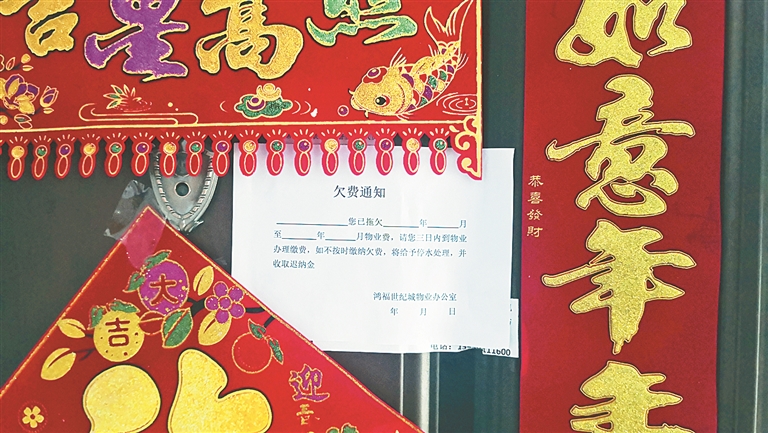 吉星高照
欠费通知
____________您已拖欠______年______月
至______年______月物业费，请您三日内到物业
办理缴费，如不按时缴纳欠费，将给予停水处理，并
收取迟纳金
鸿福世纪城物业办公室
年 月 日
如意年年
恭喜發財
大
吉
迎